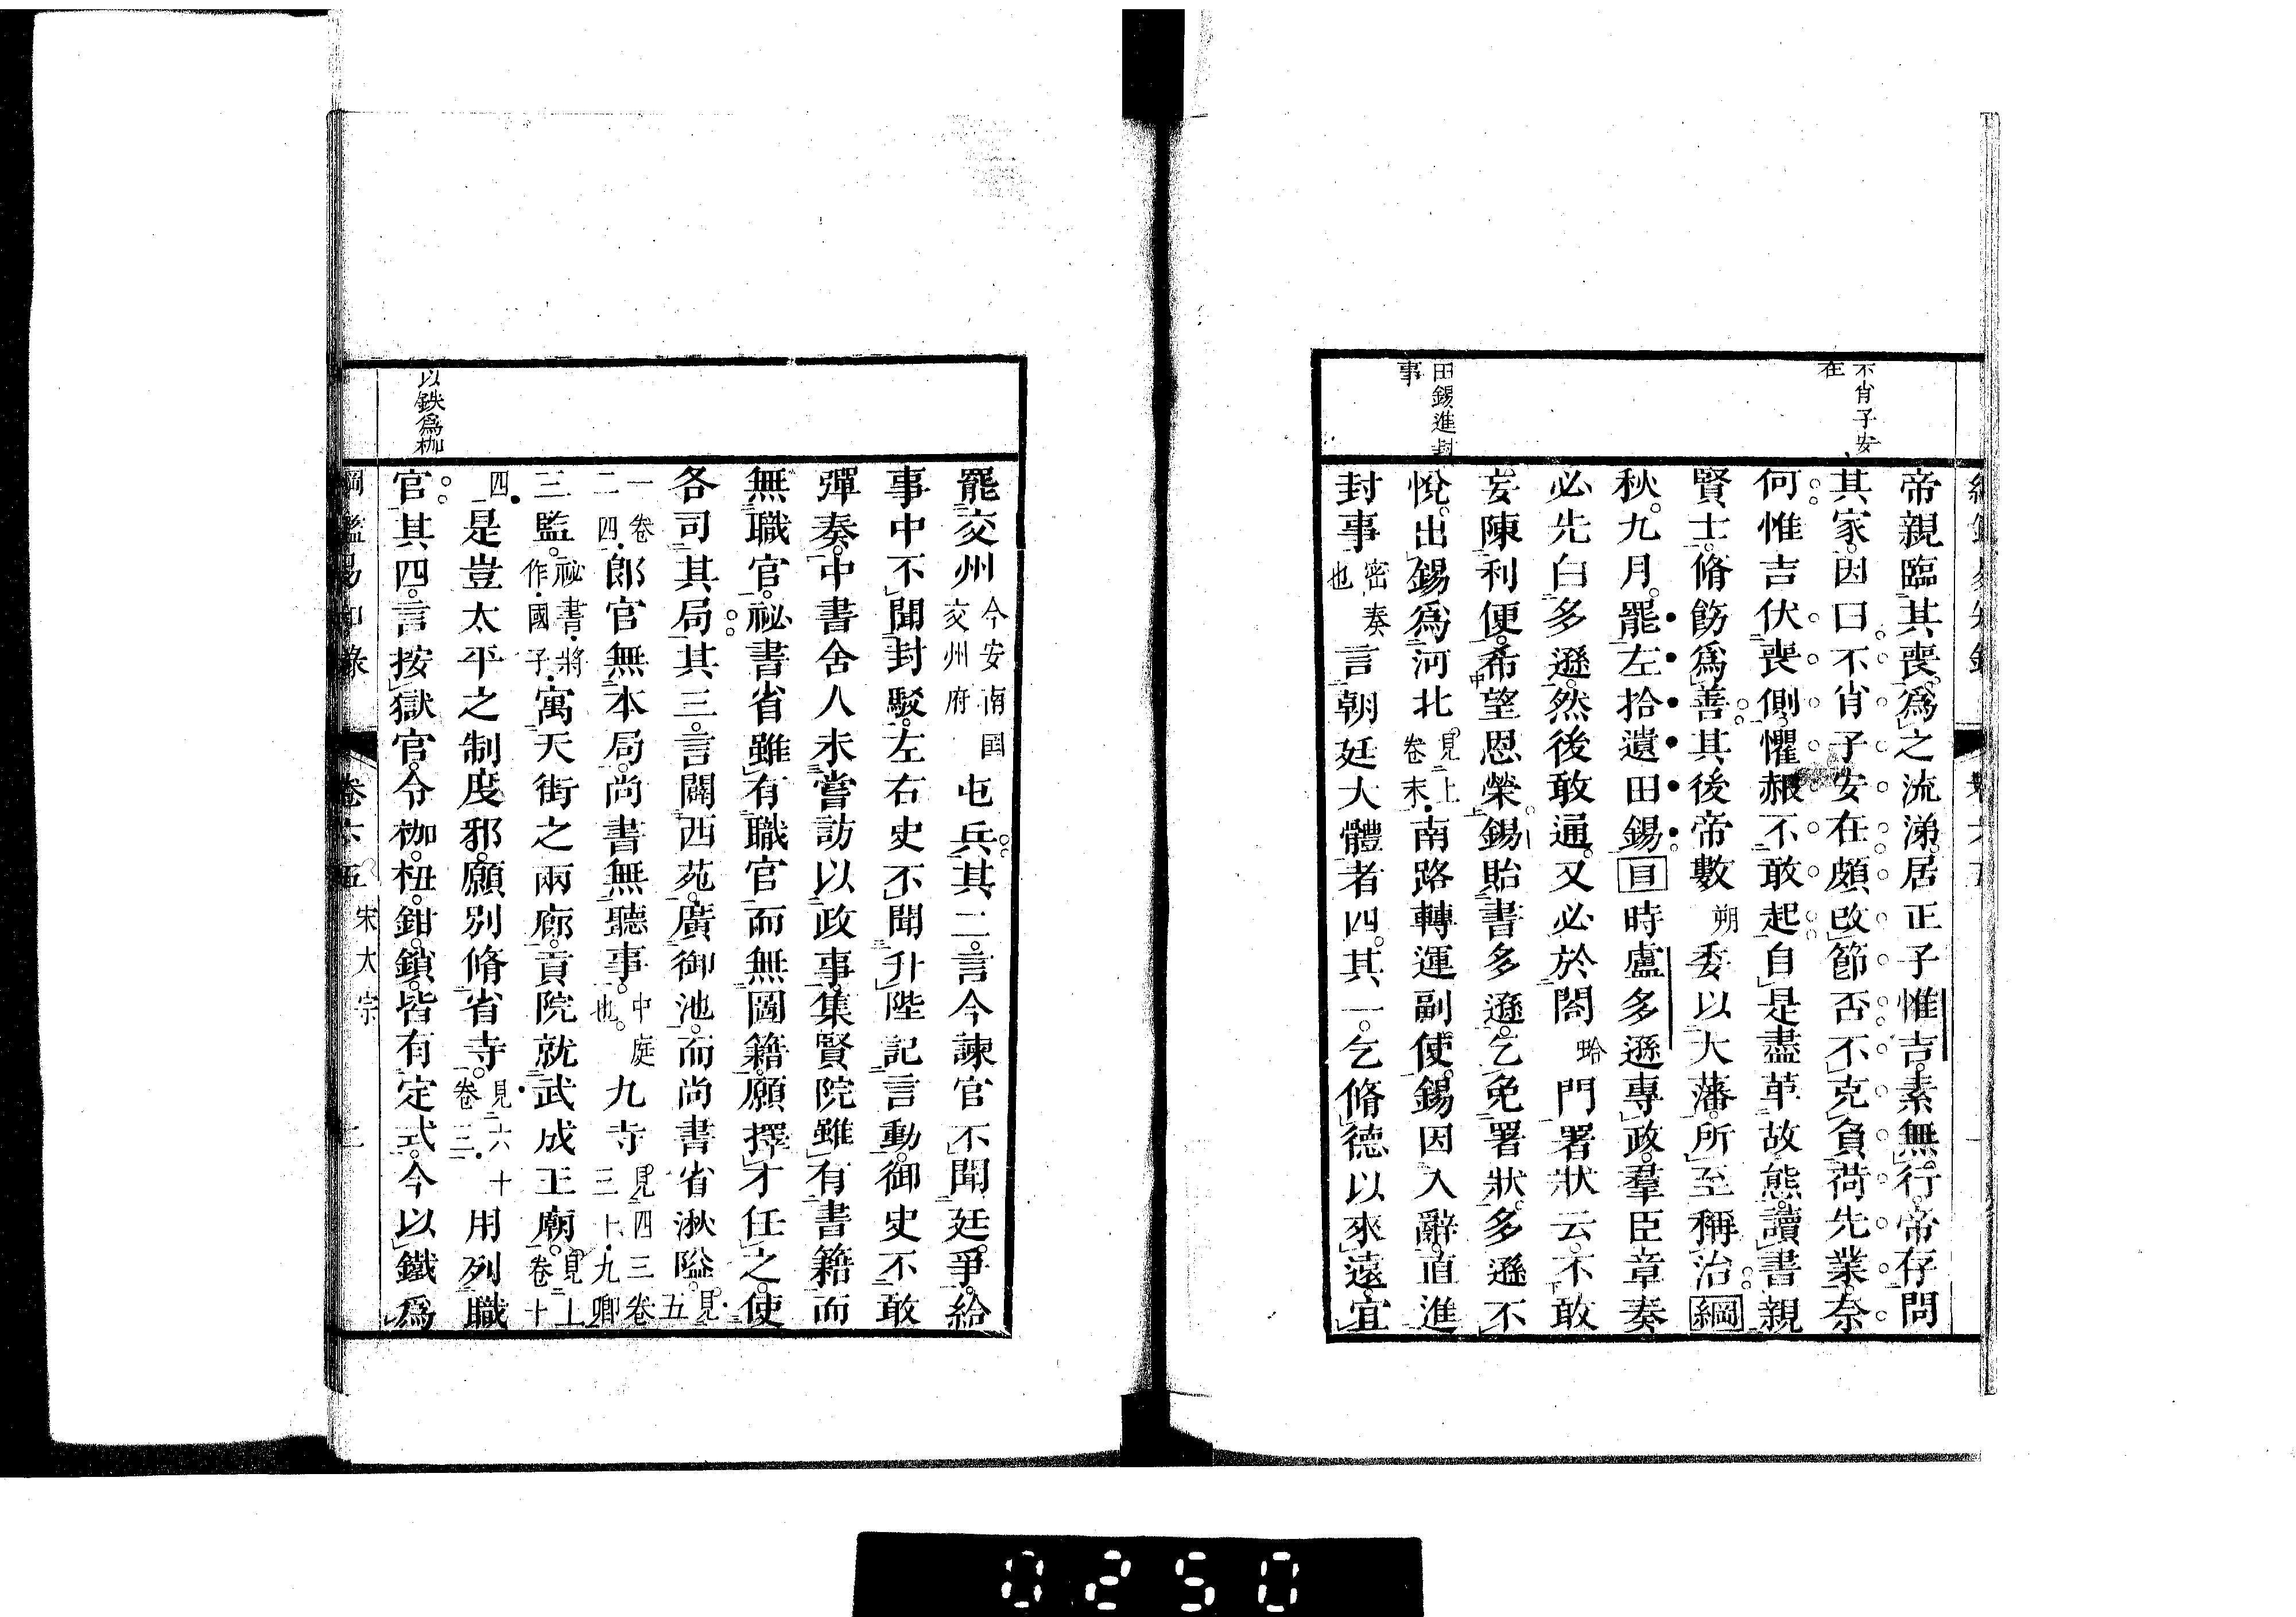 不肖子安
在
田錫進封
事
帝親臨其喪爲之流涕居正子惟吉素無行帝存問
其家因曰不肖子安在頗改節否不克負荷先業奈
何惟吉伏喪側懼赧不敢起自是盡革故態讀書親
賢士脩飭爲善其後帝數朔委以大藩所至稱治綱
秋九月罷左拾遺田錫目時盧多遜專政羣臣章奏
必先白多遜然後敢通又必於閤蛤門署狀云不敢
妄陳利便希望恩榮錫貽書多遜乞免署狀多遜不
悅出錫爲河北見上卷末南路轉運副使錫因入辭直進
封事密奏也言朝廷大體者四其一乞脩德以來遠宜
以鉄爲枷
罷交州今安南国交州府屯兵其二言今諫官不聞廷爭給
事中不聞封駁左右史不聞升陛記言動御史不敢
彈奏中書舍人未嘗訪以政事集賢院雖有書籍而
無職官祕書省雖有職官而無圖籍願擇才任之使
各司其局其三言闢西苑廣御池而尚書省湫隘見五
一卷二四郎官無本局尚書無聽事中庭也九寺見四三卷三十九卿
三監祕書將作國子寓天街之兩廊貢院就武成王廟見上卷十
四是豈太平之制度邪願別脩省寺見六十卷三用列職
官其四言按獄官令枷杻鉗鎖皆有定式今以鐵爲
綱鑑易知錄 卷六五 宋太宗
0250